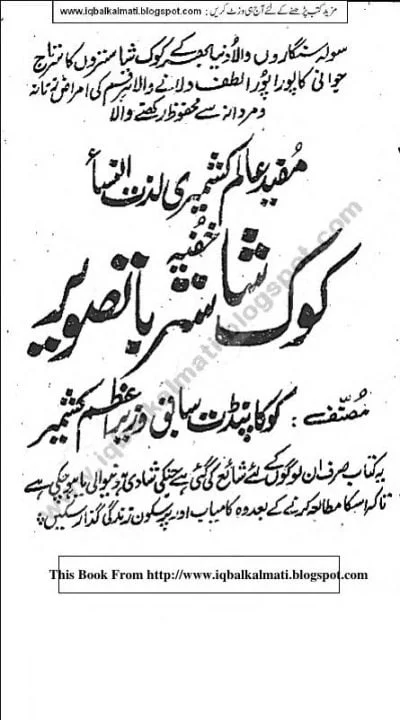 مزید کتب پڑھنے کے لئے آج ہی وزٹ کریں : www.iqbalkalmati.blogspot.com
سولہ سنگاروں والا دنیا بھر کے کوک شاستروں کا سرتاج
جوانی کا پورا پورا لطف دلانے والا ہر قسم کی امراض زنانہ
و مردانہ سے محفوظ رکھنے والا
مفید عالم کشمیری لذت النساء
خفیہ
کوک شاستر باتصویر
مصنفہ : کوکا پنڈت سابق وزیر اعظم کشمیر
یہ کتاب صرف ان لوگوں کے لئے شائع کی گئی ہے جنکی شادی ہونیوالی یا ہو چکی ہے
تاکہ اسکا مطالعہ کرنے کے بعد وہ کامیاب اور پرسکون زندگی گذار سکیں
www.iqbalkalmati.blogspot.com
This Book From http://www.iqbalkalmati.blogspot.com